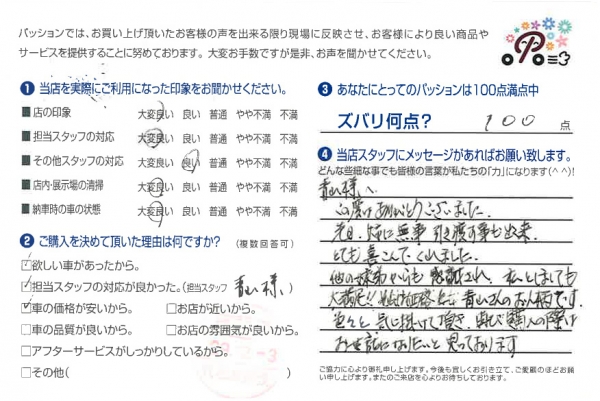 パッションでは、お買い上げ頂いたお客様の声を出来る限り現場に反映させ、お客様により良い商品や
サービスを提供することに努めております。大変お手数ですが是非、お声を聞かせてください。
1 当店を実際にご利用になった印象をお聞かせください。
■店の印象 大変良い 良い 普通 やや不満 不満
■担当スタッフの対応 大変良い 良い 普通 やや不満 不満
■その他スタッフの対応 大変良い 良い 普通 やや不満 不満
■店内・展示場の清掃 大変良い 良い 普通 やや不満 不満
■納車時の車の状態 大変良い 良い 普通 やや不満 不満
2 ご購入を決めて頂いた理由は何ですか？(複数回答可)
欲しい車があったから。
担当スタッフの対応が良かった。(担当スタッフ 青山 様)
車の価格が安いから。 お店が近いから。
車の品質が良いから。 お店の雰囲気が良いから。
アフターサービスがしっかりしているから。
その他( )
3 あなたにとってのパッションは100点満点中
ズバリ何点？ 100 点
4 当店スタッフにメッセージがあればお願い致します。
どんな些細な事でも皆様の言葉が私たちの「力」になります(^^)!
青山様へ
この度はありがとうございました。
先日、姉に無事引き渡す事も出来、
とても喜こんでくれました。
他の姉弟からも感謝され、私としましても
大満足!! 青山さんのお人柄です。
色々と気に掛けて頂き、購入の際は
お世話になりたいと思っております
ご協力に心より御礼申し上げます。今後も宜しくお引き立て、ご愛顧のほどお願
い申し上げます。またのご来店を心よりお待ちしております。